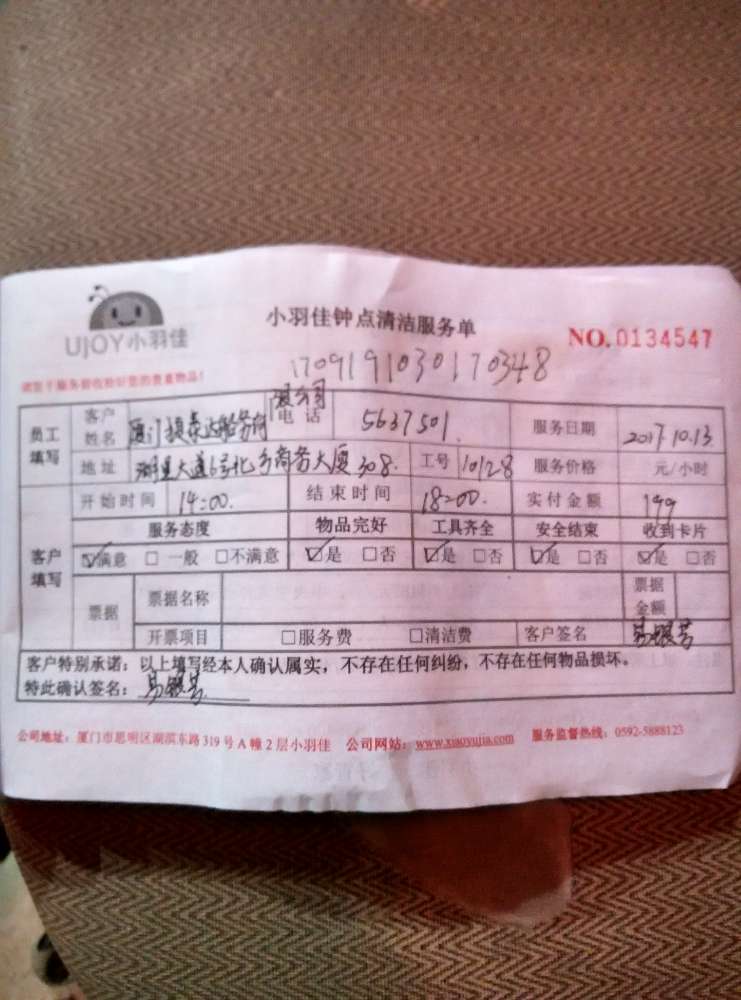 UJOY小羽佳
小羽佳钟点清洁服务单
NO.0134547
1709191030170348
员工填写 客户姓名 厦门 泰达船务有限公司 电话 5637501 服务日期 2017.10.13
地址 湖里大道6号北方商务大厦308. 工号 10128 服务价格 元/小时
客户填写 开始时间 14:00. 结束时间 18:00. 实付金额 199
服务态度 物品完好 工具齐全 安全结束 收到卡片
☑满意 □一般 □不满意 ☑是 □否 ☑是 □否 ☑是 □否 ☑是 □否
票据 票据名称 票据金额
开票项目 □服务费 □清洁费 客户签名
客户特别承诺：以上填写经本人确认属实，不存在任何纠纷，不存在任何物品损坏。
特此确认签名：
公司地址：厦门市思明区湖滨东路319号A幢2层小羽佳 公司网站：www.xiaoyujia.com 服务监督热线：0592-5888123